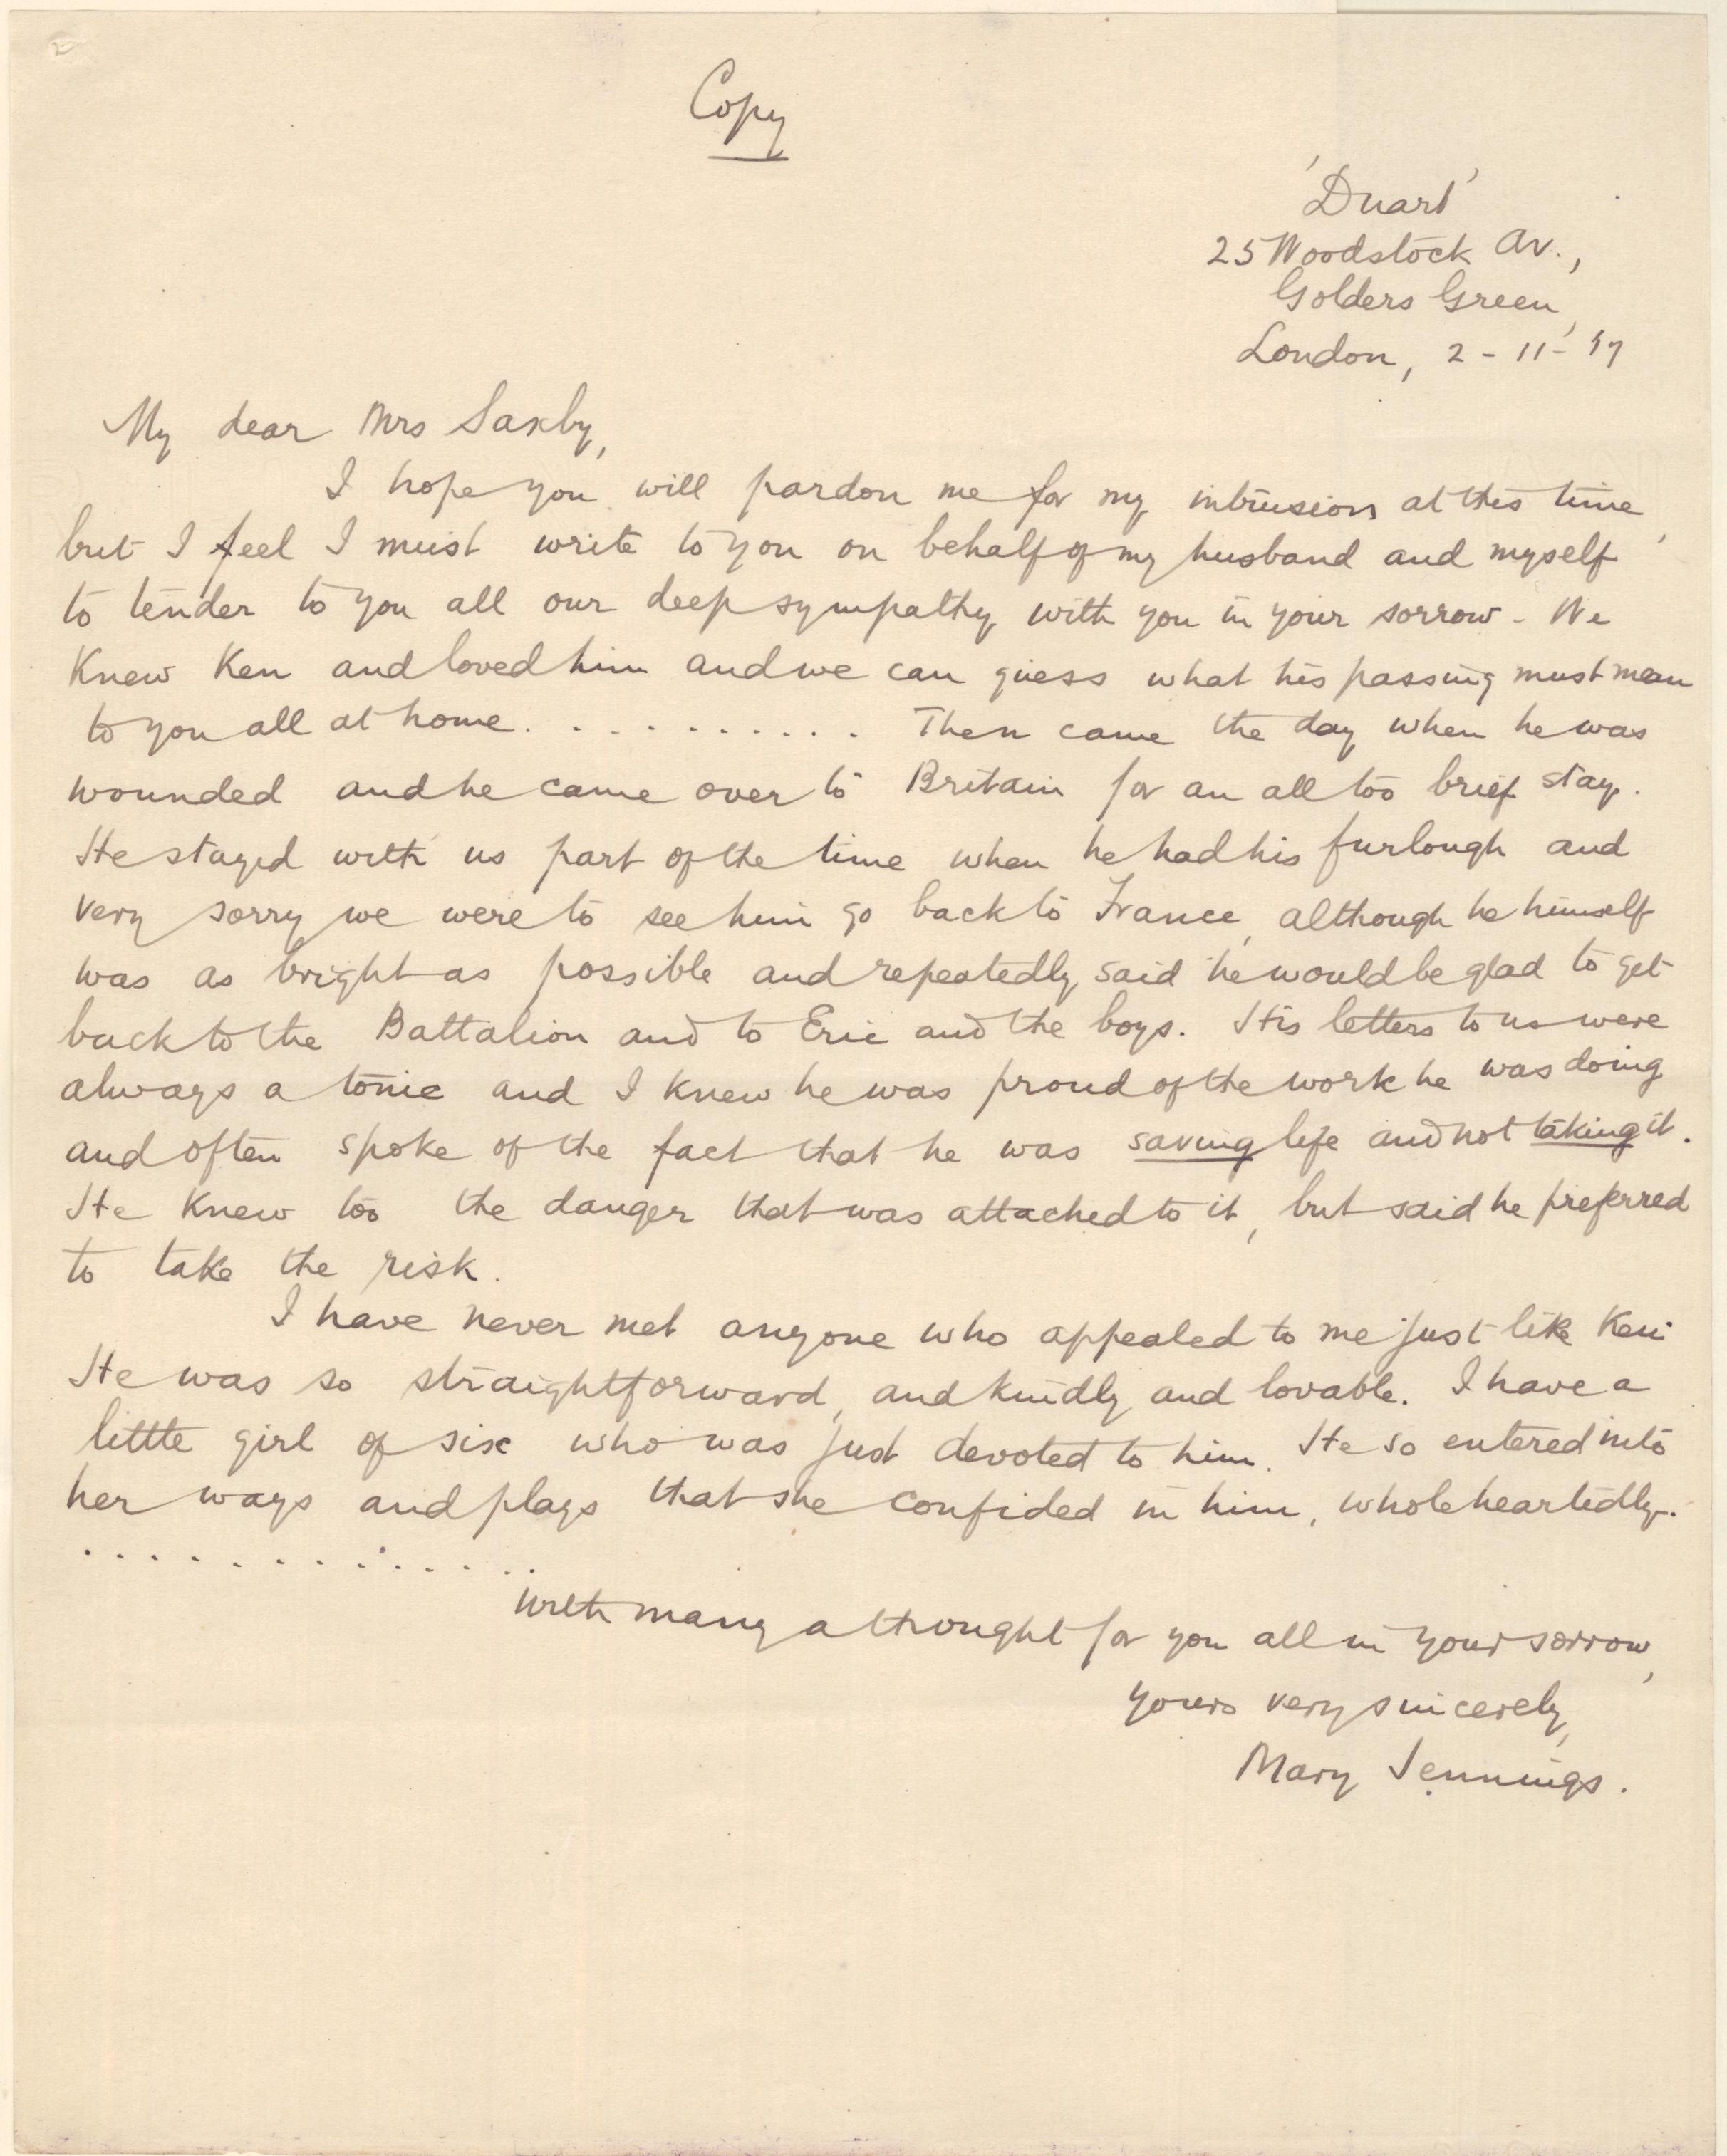 Copy
'Duart'
25 Woodstock Av.,
Golders Green,
London, 2-11-'17
My dear Mrs Saxby,
I hope you will pardon me for my intrusion at this time,
but I feel I must write to you on behalf of my husband and myself
to tender to you all our deep sympathy with you in your sorrow. We
knew Ken and loved him and we can guess what his passing must mean
to you all at home. . . . . . . . . . . Then came the day when he was
wounded and he came over to Britain for an all too brief stay.
He stayed with us part of the time when he had his furlough and
very sorry we were to see him go back to France, although he himself
was as bright as possible and repeatedly said he would be glad to get
back to the Battalion and to Eric and the boys. His letters to us were
always a tonic and I knew he was proud of the work he was doing
and often spoke of the fact that he was saving life and not taking it.
He knew too the danger that was attached to it, but said he preferred
to take the risk.
I have never met anyone who appealed to me just like Ken
He was so straightforward, and kindly and lovable. I have a
little girl of six who was just devoted to him. He so entered into
her ways and plays that she confided in him, wholeheartedly.
. . . . . . . . . . . . . .
With many a thought for you all in your sorrow,
yours very sincerely,
Mary Jennings.